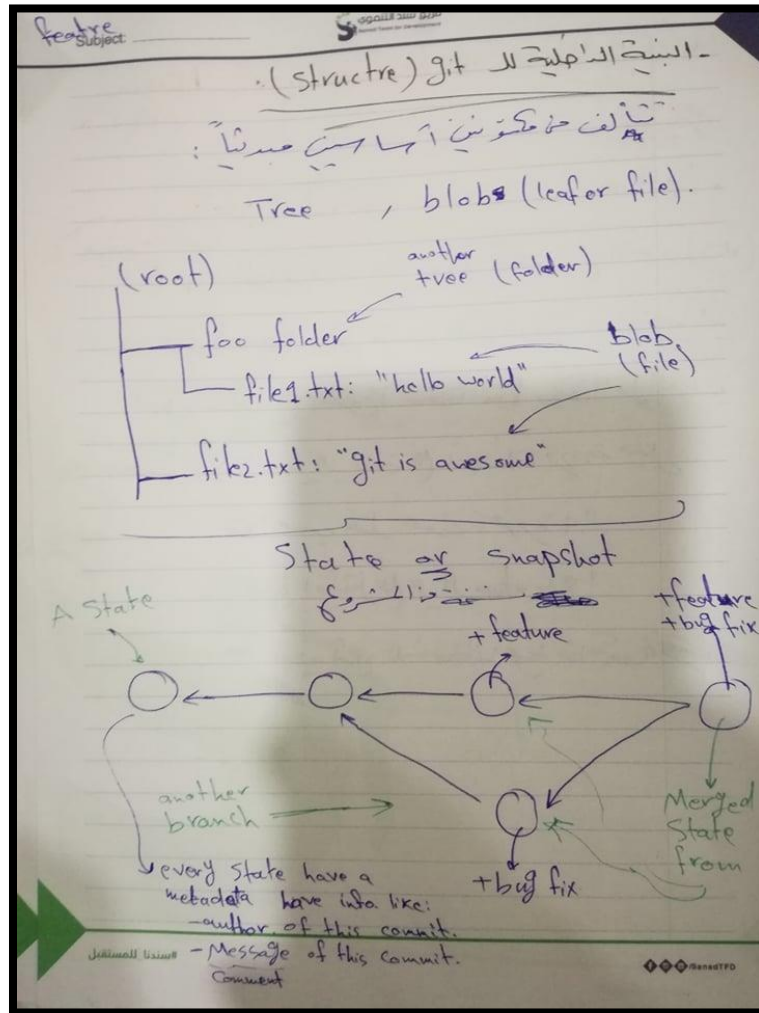 featre
Subject:
فريق سند التنموي
Sanad Team for Development
- البنية الداخلية لل git (structre).
تتألف من مكونين أساسيين مبدئياً :
Tree , blobs (leaf or file).
another
tree (folder)
(root)
foo folder
blob
(file)
file1.txt: "hello world"
file2.txt: "git is awesome"
State or snapshot
نسخة من المشروع
A State
+ feature
+feature
+bug fix
another
branch
Merged
State
from
+bug fix
every state have a
metadata have info like:
-author of this commit.
- Message of this commit.
Comment
#سندنا_للمستقبل
/SanadTFD